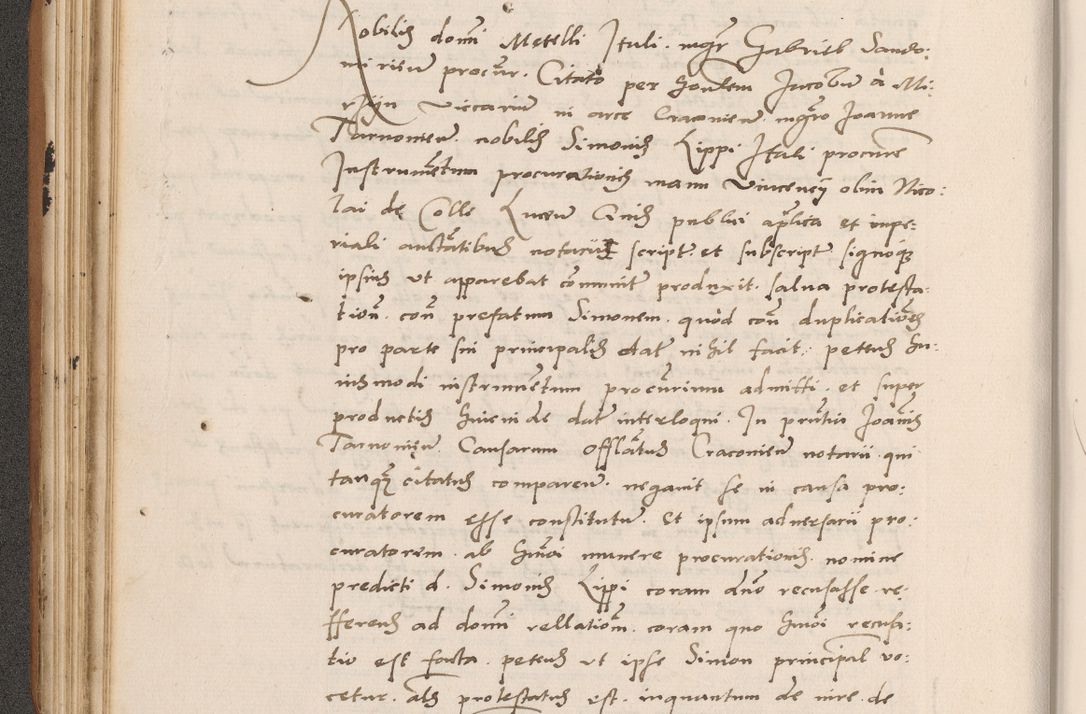 Nobilis domi Metelli Ituli. mgr Gabriel Sando:
mirien procur. Citato per honstem Jacobum à Mi:
rzijn viccarium in arce Cracovien. mgro Joanne
Tarnomien. nobilis Simonis Lippi Itali procure
Instrumentum procurationis manu Vincencij olim Nico:
lai de Colle Lucen Civis publici aplica et impe:
riali auctatibus notarii script. et subscript signoque
ipsius ut apparebat communit produxit. salva protesta:
tion. con prefatum Simonem. quod con duplicationes
pro parte sui principalis dat nihil facit. petens hu:
iusmodi instrumentum procurium admitti. et super
productis huiende dat interloqui. In pntia Joannis
Tarnomien. Causarum Offlatus Cracovien notarii. qui
tanque citatus comparen. negavit se in causa pro:
curatorem esse constitutum. Et ipsum adversarii pro:
curatorem. ab hmoi munere procurationis. nomine
predicti d. Simonis Lippi coram dno recusasse re:
fferens ad domi rellationem. coram quo hmoi recusa:
tio est facta. petens ut ipse Simon principal vo:
cetur. als protestatus est. inquantum de iure de